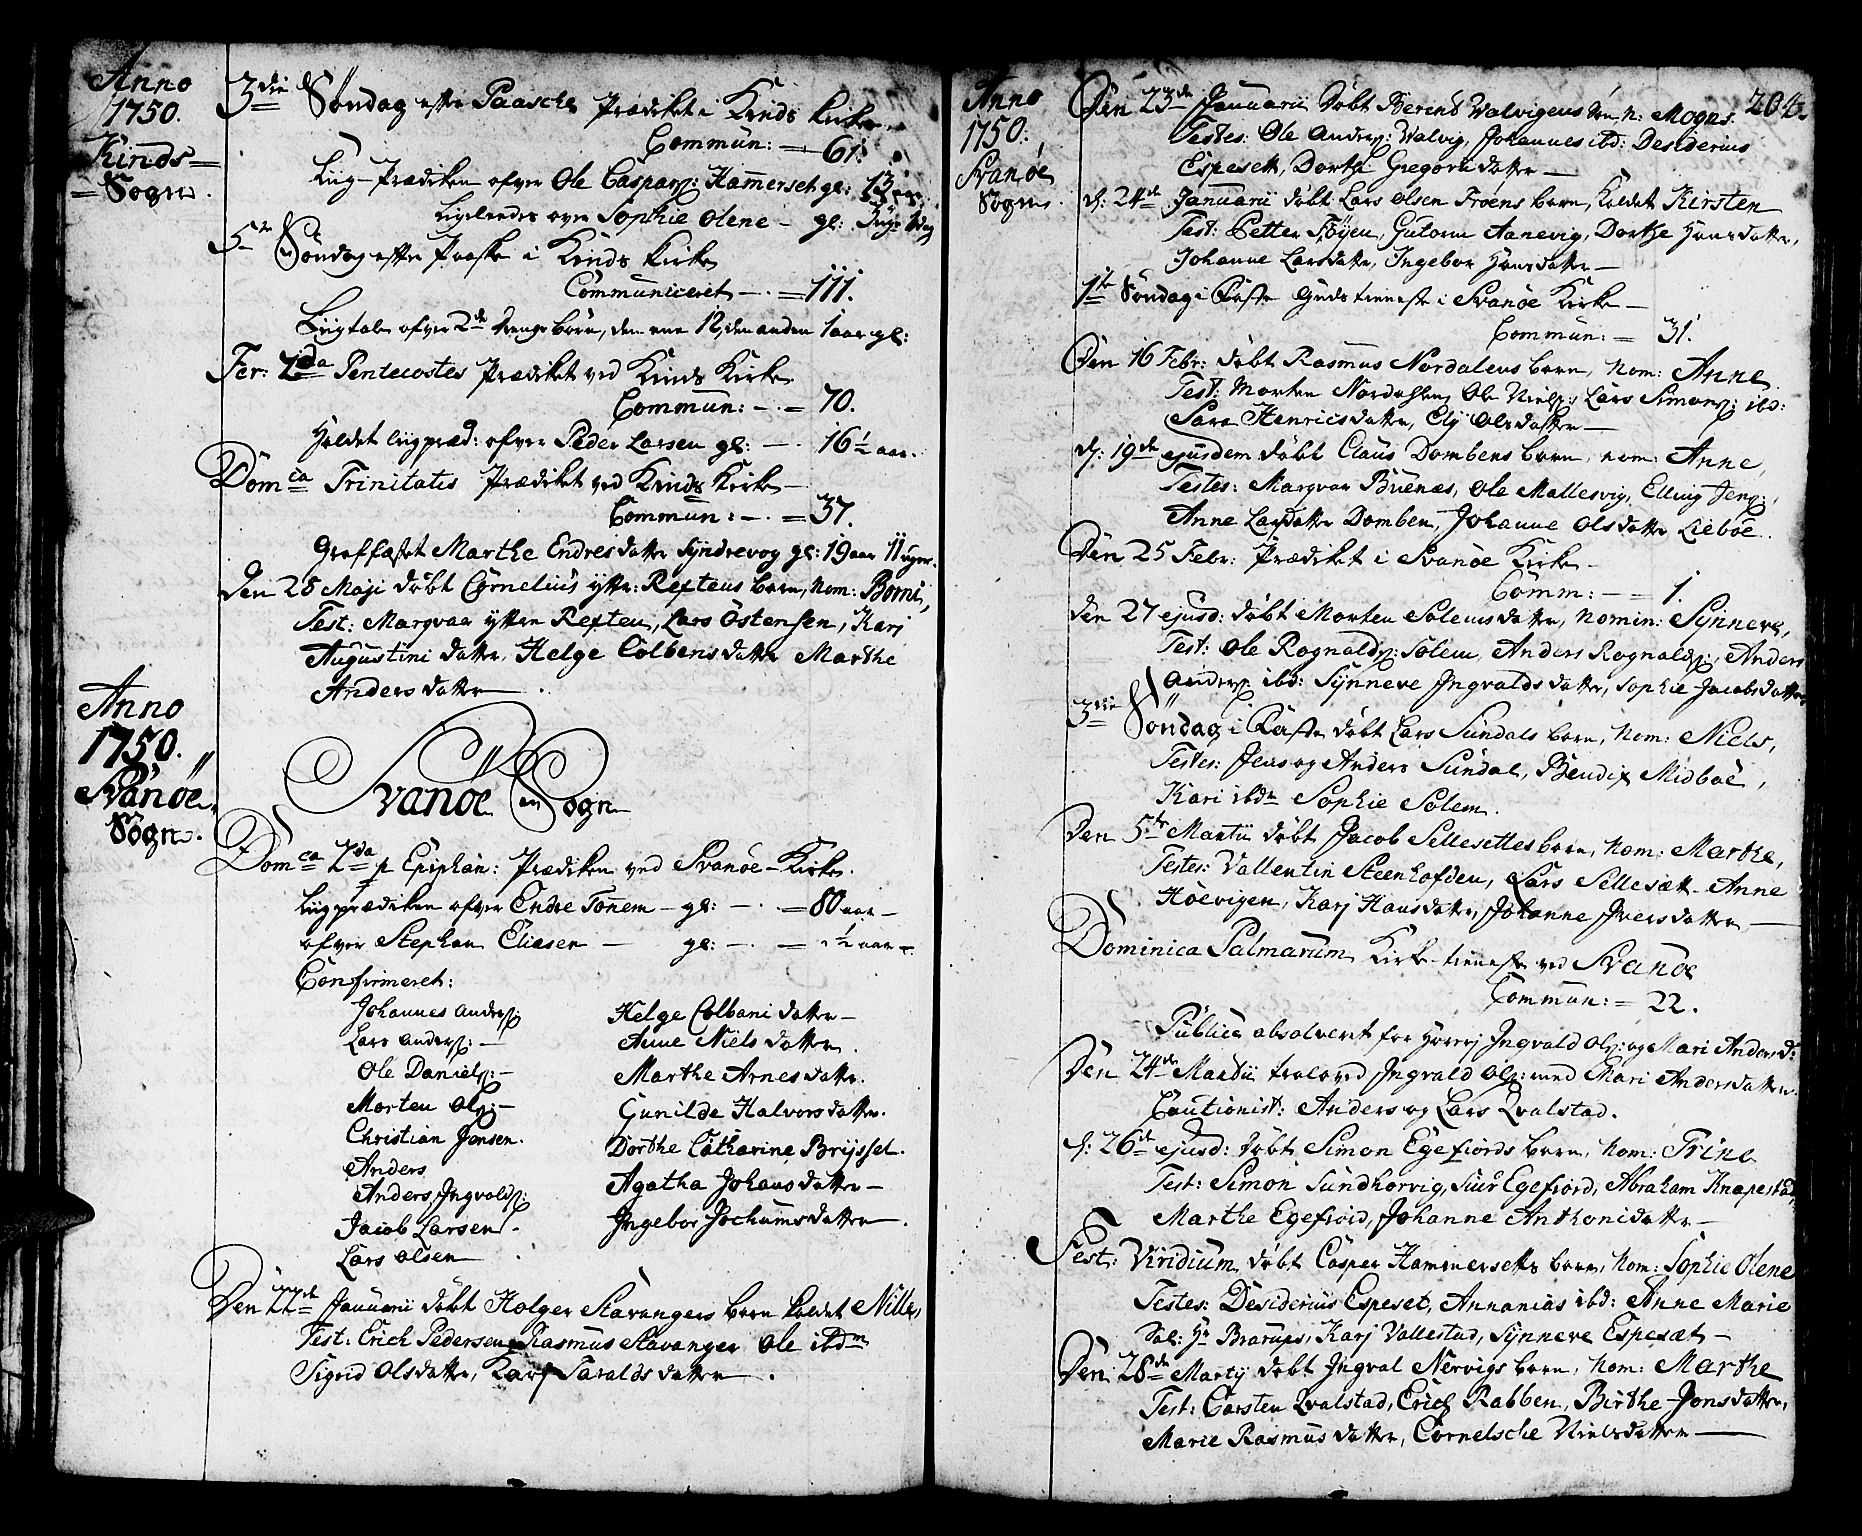 Anno
1750.
Kinds=
=Sogn.
3die Søndag efter Paasche Prædiket i Kinds Kirke.
Commun: — 61.
Liig-Prædiken ofver Ole Caspars: Hamerset gl: 13 aar
Ligeledes over Sophie Olene — gl:
5te Søndag efter Paaske i Kinds Kirke
Communiceret — . — 111.
Liigtale ofver 2de Drenge börn, den ene 12, den anden 1 aar gl:
Fer: 2da Pentecostes Prædiket ved Kinds Kirke
Commun: — . = 70.
Holdet liigpræd: ofver Peder Larsen gl: — . 16½ aar.
Domca Trinitatis Prædiket ved Kinds Kirke —
Commun: — . = 37.
Graffæstet Marthe Endresdatter Syndrevog gl: 19 aar 11 uger.
Den 28 Maji döbt Cornelius ytter: Rextens barn, nom: Borni,
Test: Margvar ytter Rexten, Lars Östensen, Karj
Augustini datter, Helge Colbensdatter Marthe
Andersdatter — .
Anno
1750.
Svanöe
Sogn.
Svanöe Sogn
Domca 2da p Epiphan: Prædiken ved Svanöe-Kirke.
Liigprædiken ofver Endre Tonem — gl: — . = 80 aar —
ofver Stephan Eliesen — gl: — . = ½ aar —
Confirmeret:
Johannes Anders: Helge Colbani datter —
Lars Anders: — Anne Nielsdatter.
Ole Daniels: — Marthe Arnesdatter.
Morten Ols: — Gunilde Halvorsdatter.
Christian Jensen. Dorthe Catharine Brijssel.
Anders
Anders Ingvalds: Agatha Johansdatter —
Jacob Larsen. Ingebor Jochumsdatter — .
Lars Olsen — .
Den 22de Januarii döbt Holger Stavangers barn kaldet Nille,
Test: Erich Pedersen, Rasmus Stavanger Ole ibdm
Sigrid Olsdatter, Karj Taraldsdatter — .
Anno
1750.
Svanöe
Sogn.
204.
Den 23de Januarii Döbt Berend Valvigens Sön, N: Mogns.
Testes: Ole Anders: Valvig, Johannes ibd: Desiderius
Espeset, Dorthe Gregoridatter —
d: 24de Januarii döbt Lars Olsen Troens barn, kaldet Kirsten
Test: Petter Föyen, Gutorm Aanevig, Dorthe Hansdatter,
Johanne Larsdatter, Ingebor Hansdatter —
1te Søndag i Faste Guds tienneste i Svanöe Kirke —
Commun: = 31.
Den 16 Febr: döbt Rasmus Nordalens barn, Nom: Anne
Test: Morten Nordahlen, Ole Niels: Lars Simons: ibd:
Sara Henricsdatter, Elij Olsdatter —
d: 19de ejusdem döbt Claus Dombens barn, nom: Anne,
Testes: Margvar Buenæs, Ole Mallesvig, Elling Jens:,
Anne Larsdatter Domben, Johanne Olsdatter Lieböe.
Den 25 Febr: Prædiket i Svanöe Kirke —
Comm: — = 1.
den 27 ejusd: döbt Morten Solemsdatter, nomin: Synneve,
Test: Ole Rognalds: Solem, Anders Rognalds:, Anders
Anders: ibd: Synneve Ingvaldsdatter, Sophie Jacobsdatter
3die Søndag i Faste döbt Lars Sundals barn, Nom: Niels,
Testes: Jens og Anders Sundal, Bendix Midböe,
Kari ibdm Sophie Solem.
Den 5te Martii döbt Jacob Sellesettes barn, Nom: Marthe,
Testes: Vallentin Steenhofden, Lars Sellesæt, Anne
Höevigen, Karj Hansdatter, Johanne Iversdatter —
Dominica Palmarum Kirke-tienneste ved Svanöe
Commun: = 22.
Publice absolveret for Horerj Ingvald Ols: og Mari Andersd:
Den 24de Martii troloved Ingvald Ols: med Mari Andersdatter.
Cautionist: Anders og Lars Qvalstad.
d: 26de ejusd: döbt Simon Egefiords barn, Nom: Trine
Test: Simon Sundhorvig, Siur Egefiord, Abraham Knapestad,
Marthe Egefiord, Johanne Anthonidatter —
Fest: Viridium döbt Casper Hammersets barn, Nom: Sophie Olene
Testes: Desiderius Espeset, Annanias ibd: Anne Marie
Sal: Hr Brarups, Karj Vallestad, Synneve Espesæt —
Den 28de Martij döbt Ingval Nervigs barn, Nom: Marthe
Test: Carsten Qvalstad, Erich Rabben, Birthe Jonsdatter,
Marie Rasmusdatter, Cornelsche Nielsdatter —